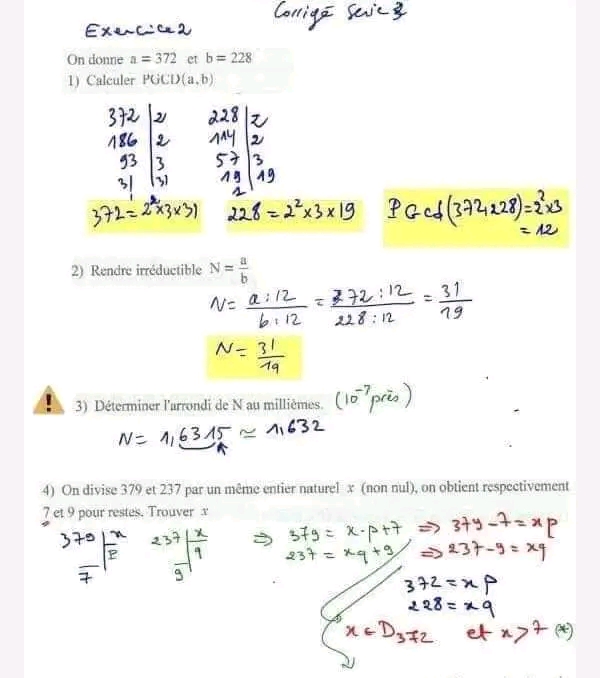 Corrigé Serie 3
Exercice 2
On donne a = 372 et b = 228
1) Calculer PGCD(a, b)
372 | 2
186 | 2
93 | 3
31 | 31
1
228 | 2
114 | 2
57 | 3
19 | 19
1
372 = 2² x 3 x 31
228 = 2² x 3 x 19
PGcd(372,228) = 2² x 3
= 12
2) Rendre irréductible N = a/b
N = a : 12 / b : 12 = 372 : 12 / 228 : 12 = 31/19
N = 31/19
3) Déterminer l'arrondi de N au millièmes. (10⁻⁷ près)
N = 1,6315 ≃ 1,632
4) On divise 379 et 237 par un même entier naturel x (non nul), on obtient respectivement
7 et 9 pour restes. Trouver x
379 | x
p
7
237 | x
q
9
⇒ 379 = x·p+7 ⇒ 379-7 = xp
237 = xq+9 ⇒ 237-9 = xq
372 = xp
228 = xq
x ∈ D372 et x > 7 (*)